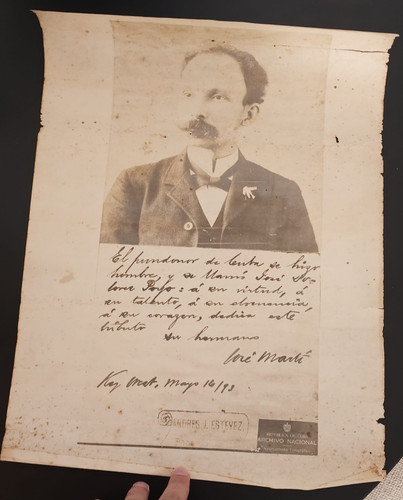 El pundonor de Cuba se hizo
hombre, y se llamó José Do-
lores Poyo: á su virtud, á
su talento, á su elocuencia,
á su corazon, dedica este
tributo
su hermano
José Martí
Key West, Mayo 16/93.
ANDRES J. ESTEVEZ.
REPUBLICA DE CUBA
ARCHIVO NACIONAL